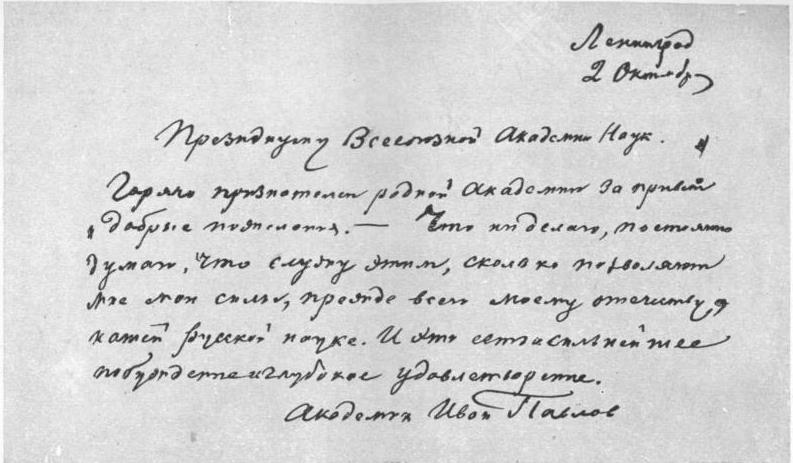 Ленинград
2 Октябр
Президиуму Всесоюзной Академии Наук.
Горячо признателен родной Академии за привет и
добрые пожелания. — Что ни делаю, постоянно
думаю, что служу этим, сколько позволяют
мне мои силы, прежде всего моему отечеству,
нашей русской науке. И это есть и сильнейшее
побуждение и глубокое удовлетворение.
Академик Иван Павлов